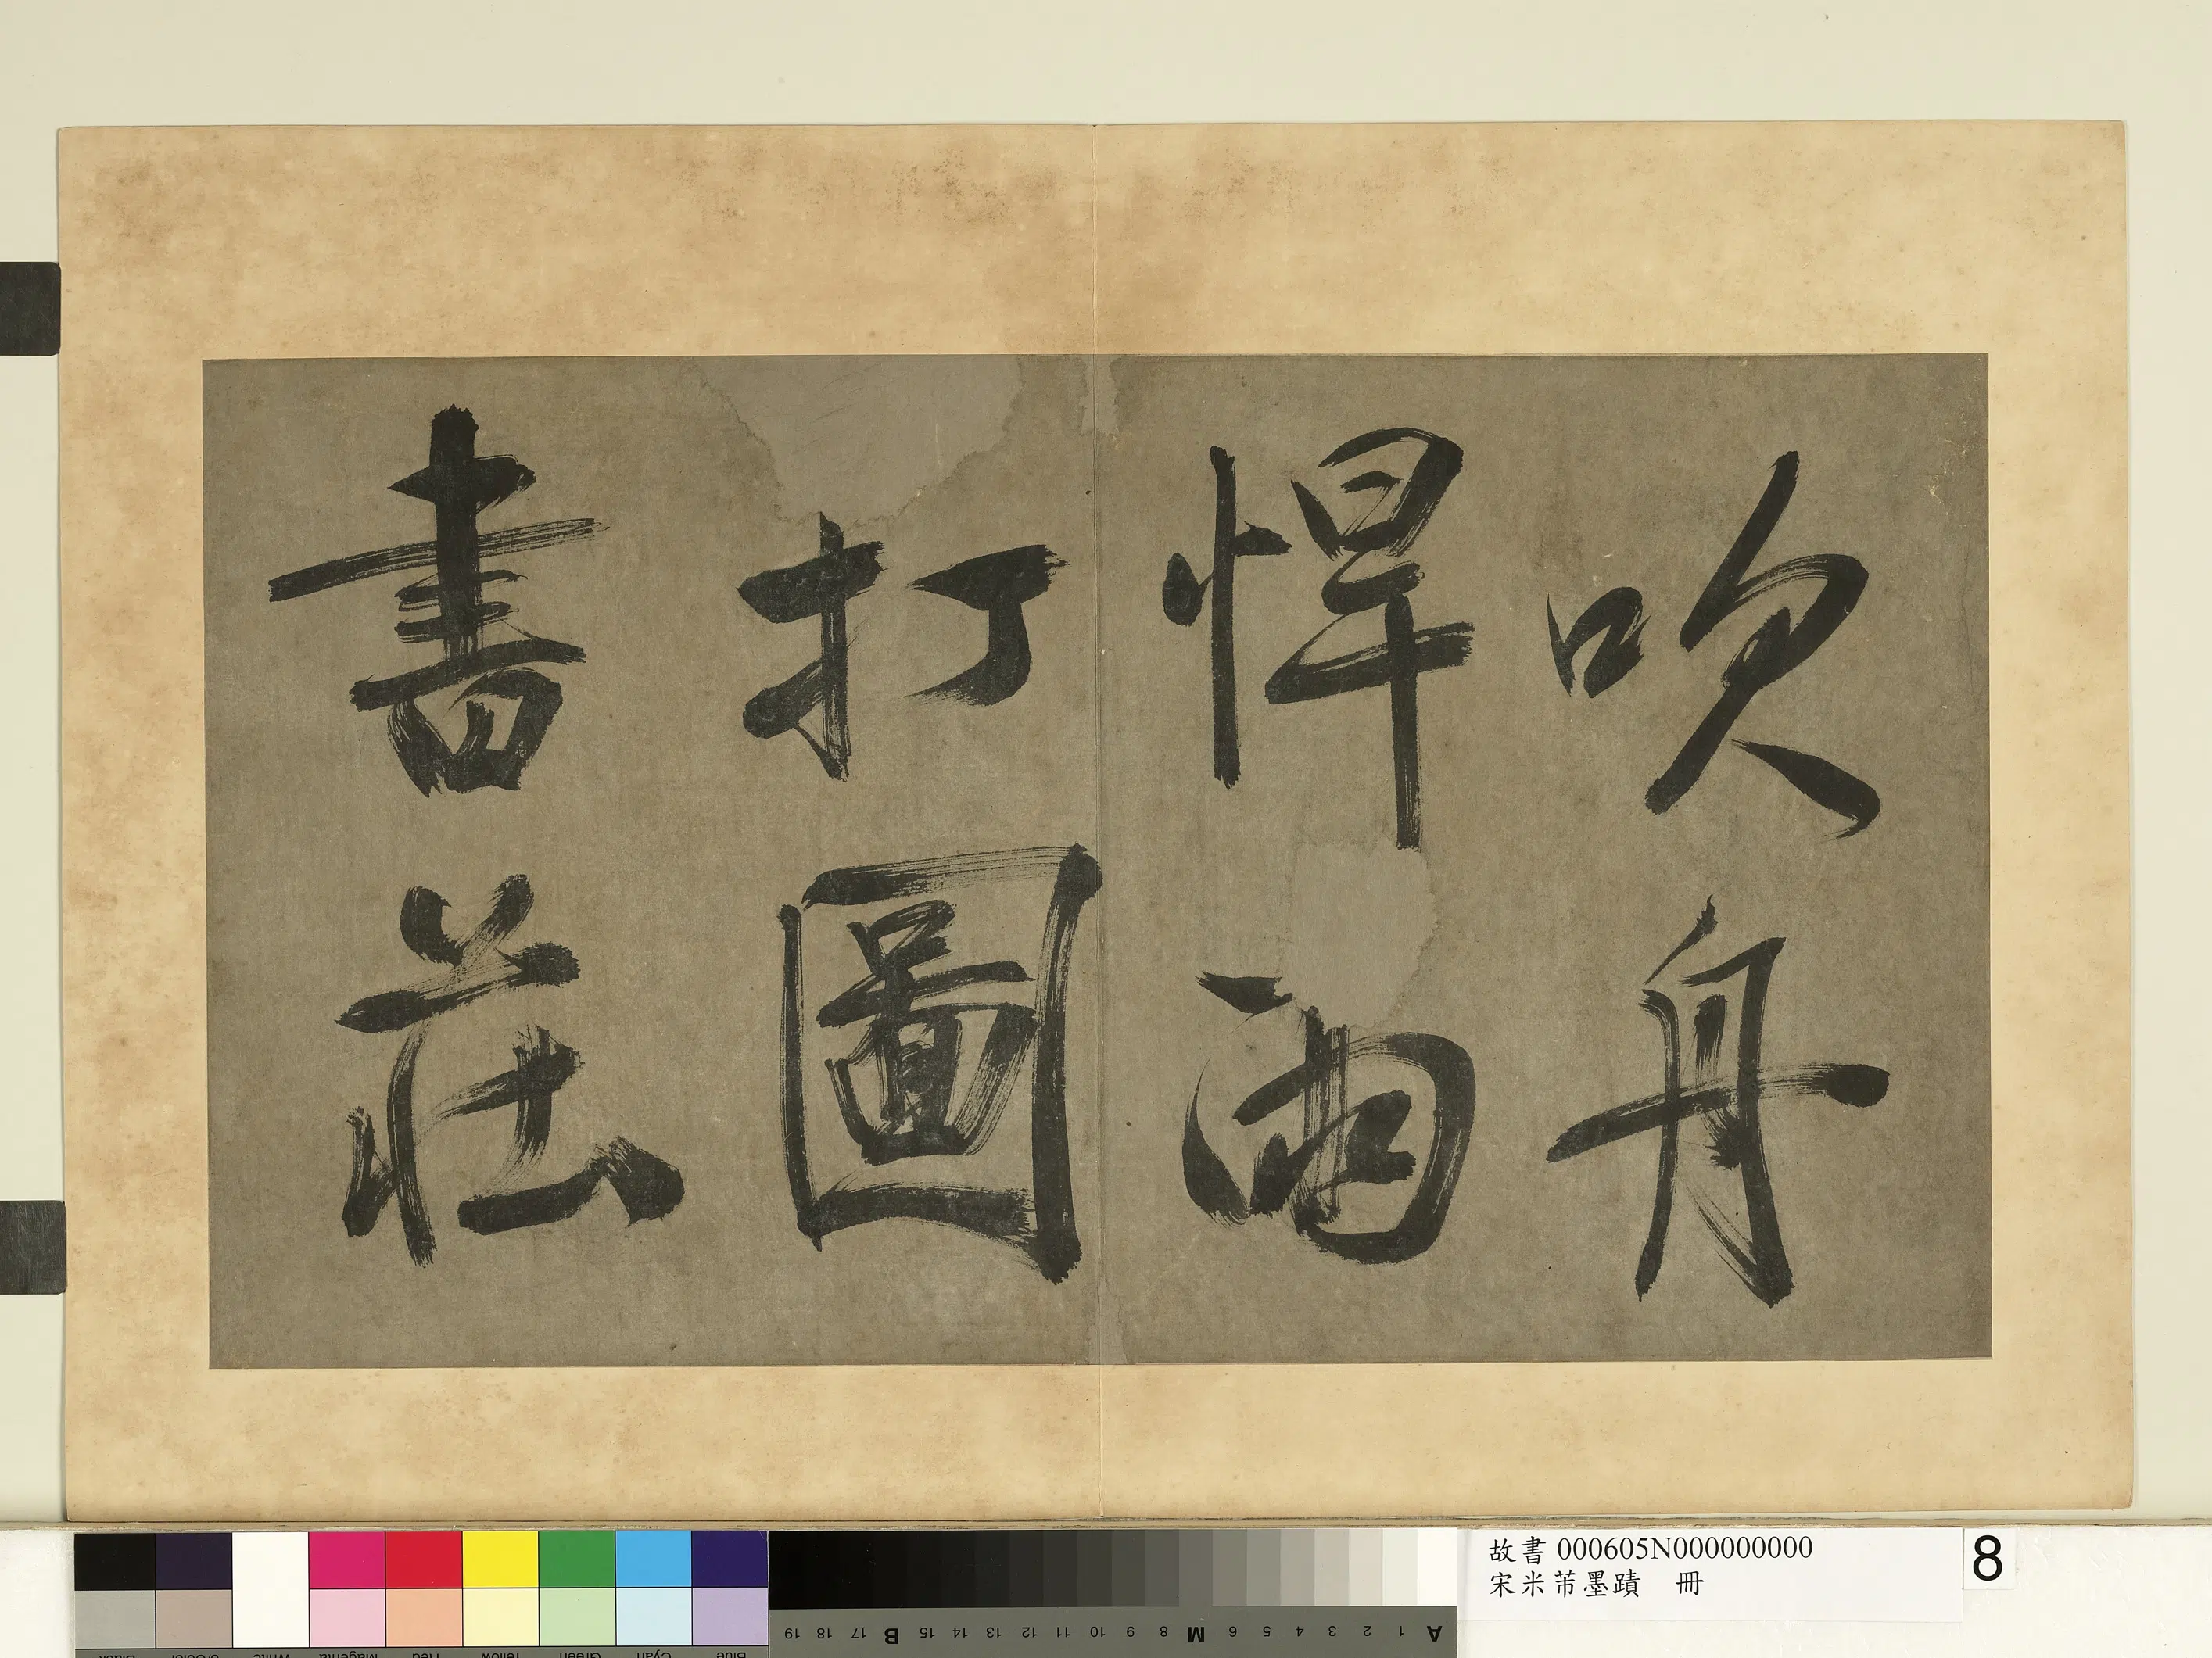 吹舟
悍雨
打圖
書莊
故書 000605N000000000
宋米芾墨蹟 冊
8
A 1 2 3 4 5 6 M 8 9 10 11 12 13 14 15 B 17 18 19
Blue Cyan Green Yellow Red Magenta White 3/Color Black